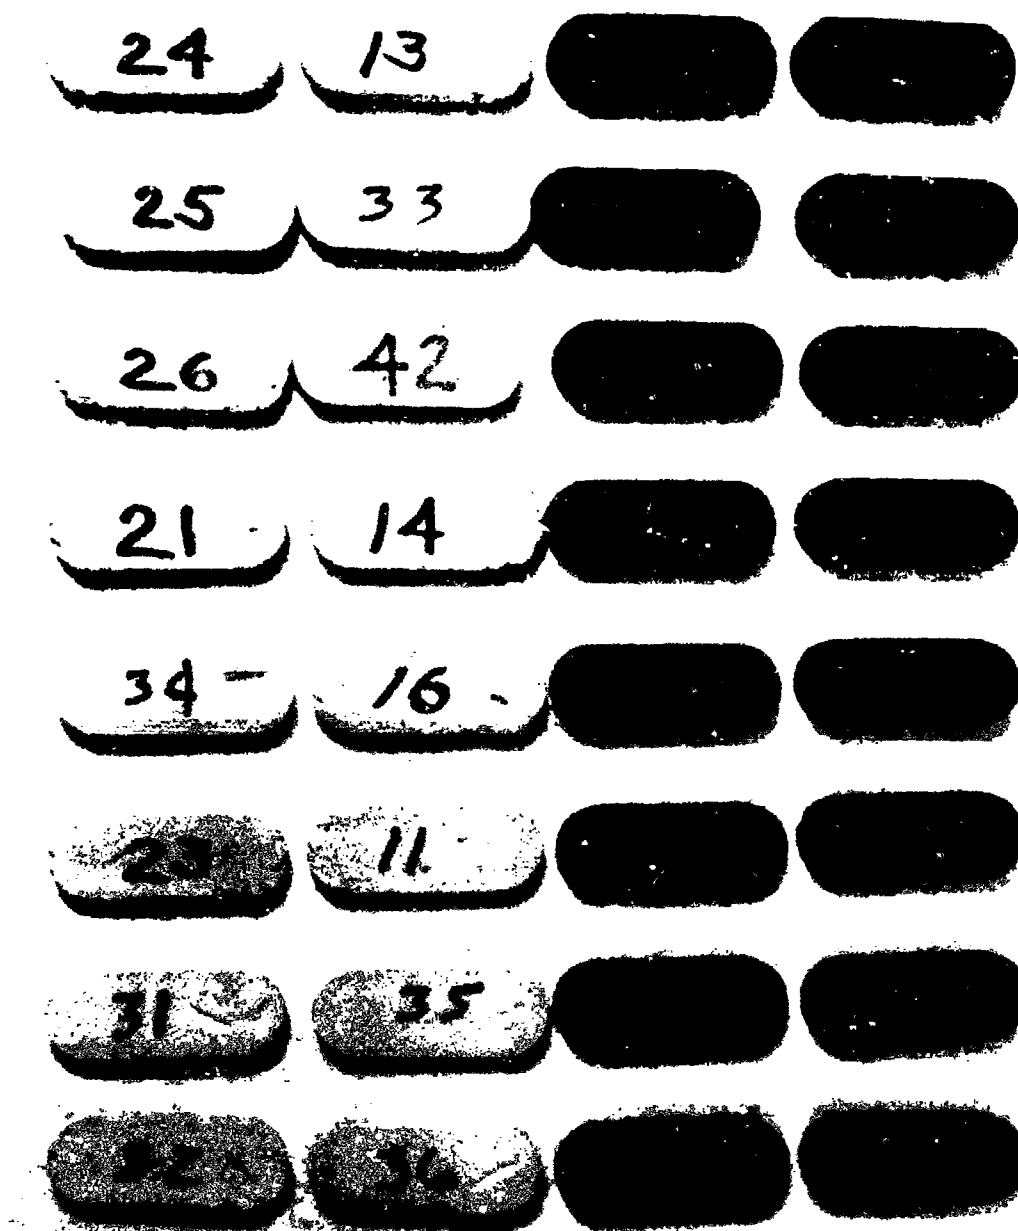 24 13
25 33
26 42
21 14
34 16
23 11
31 35
32 36